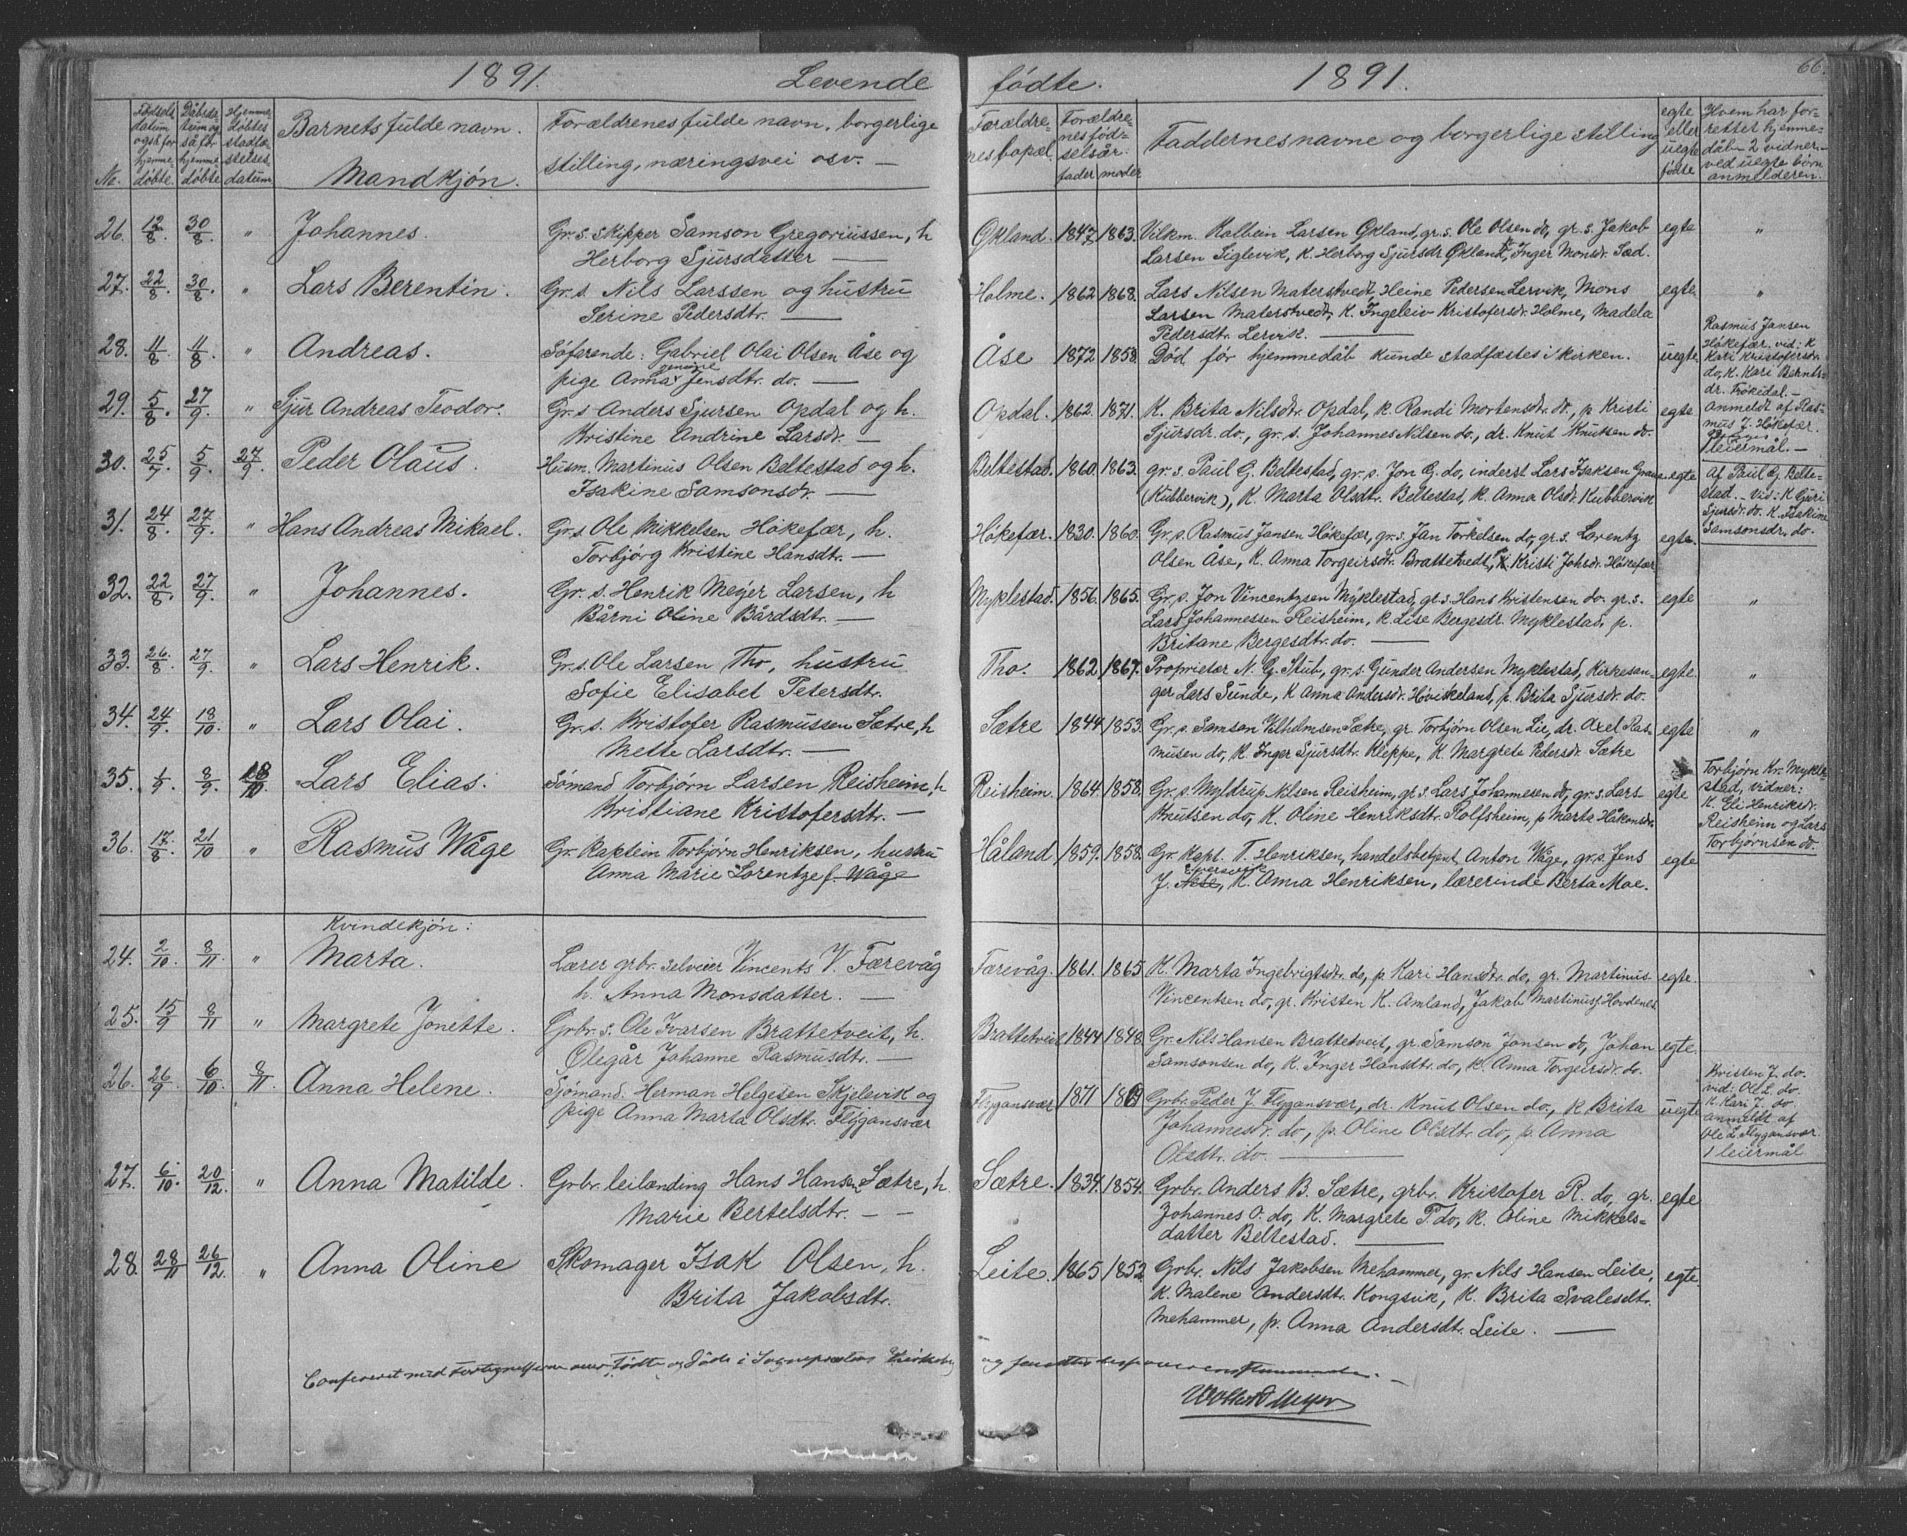 1891. Levende
fødte. 1891.
66.
No.
Fødsels datum også for hjemme døbte.
Dåbsdatum også for hjemme døbte
Hjemme døbtes stadfæstelses datum
Barnets fulde navn.
Mandkjøn.
Forældrenes fulde navn, borgerlige
stilling, næringsvei osv. —
Forældrenes bopæl.
Forældrenes fødselsår. fader moder
Faddernes navne og borgerlige stilling
egte eller uegte fødte
Hvem har forrettet hjemmedåb 2 vidner. — ved uegte børn anmelderen.
26. 12/8. 30/8 " Johannes. Gr. s. skipper Samson Gregoriussen, h
Herborg Sjursdatter —
Økland. 1847. 1863. Vilkm. Kalbein Larsen Økland, gr. s. Ole Olsen do, gr. s. Jakob egte "
Larsen Siglevik, K. Herborg Sjursdr Økland, Inger Monsdr. Sæd.
27. 22/8 30/8 " Lars Berentin. Gr. s. Nils Larssen og hustru
Serine Pedersdtr. —
Holme. 1862 1868. Lars Nilsen Materstvedt, Heine Pedersen Lervik, Mons egte "
Larsen Materstvedt, K. Ingeleiv Kristofersdr. Holme, Madela
Pedersdtr. Lervik. —
28. 11/8 11/8 " Andreas. Søfarende: Gabriel Olai Olsen Åse og
pige Anna Jensdtr. do. —
Åse 1872. 1858. Død før hjemmedåb kunde stadfæstes i kirken. uegte
Rasmus Jansen
Høkefær. vid: K
Kari Kristofersdr.
do, K. Kari Berntsdr. Trokedal. —
Anmeldt af Rasmus J. Høkefær.
1 leiermål. —
29. 5/8. 27/9. " Sjur Andreas Teodor. Gr. s Anders Sjursen Opdal og h.
Kristine Andrine Larsdr. —
Opdal. 1862. 1871. K. Brita Nilsdtr. Opdal, K. Randi Mortensdtr. do, p. Kristi egte
Sjursdr. do., gr. s. Johannes Nilsen do., dr. Knut Knutsen do.
30. 25/7 5/9 27/9. Peder Olaus. Husm. Martinus Olsen Beltestad og h.
Isakine Samsonsdr. —
Beltestad. 1860. 1863. gr. s. Paul G. Beltestad, gr. s. Jon G. do, inderst Lars Isaksen egte
(Kubbervik), K. Marta Olsdtr. Beltestad, K. Anna Olsdr. Kubbervik
Af Paul G. Beltestad. — vid: K Guri
Sjursdr. do. K. Isakine
Samsonsdr. do.
31. 24/8. 27/9. " Hans Andreas Mikael. Gr. s. Ole Mikkelsen Høkefær, h.
Torbjørg Kristine Hansdtr. —
Høkefær. 1830. 1860. Gr. s. Rasmus Jansen Høkefær, gr. s. Jan Torkelsen do, gr. s. Lorentz egte.
Olsen Åse, K. Anna Torgeirsdr. Brattetvedt, Kristi Johsdr. Høkefær
32. 22/8. 27/9. " Johannes. Gr. s. Henrik Meyer Larsen, h
Bårni Oline Bårdsdtr. —
Myklestad. 1856. 1865. Gr. s. Jon Vincentzsen Myklestad, gr. s. Hans Kristensen do. gr. s. egte "
Lars Johannessen Reisheim, K. Lise Bergesdr. Myklestad, p.
Britane Bergesdtr. do. —
33. 26/8 27/9. " Lars Henrik. Gr. s. Ole Larsen Tho, hustru
Sofie Elisabet Petersdtr.
Tho. 1862. 1867. Proprietær N. G. Stub, gr. s. Gunder Andersen Myklestad, Kirkesanegte. "
ger Lars Sunde, K. Anna Andersdr. Høvikeland, p. Brita Sjursdr. do.
34. 24/9. 18/10 " Lars Olai. Gr. s. Kristofer Rasmussen Sætre, h
Mette Larsdtr. —
Sætre 1844. 1853. Gr. s. Samson Vilhelmsen Sætre, gr. Torbjørn Olsen Lie, dr. Axel Rasegte "
musen do, K. Inger Sjursdtr. Kleppe, K. Margrete Pedersdr. Sætre
35. 1/9. 8/9. 18/10. Lars Elias. Sømand Torbjørn Larsen Reisheim, h
Kristiane Kristofersdtr. —
Reisheim. 1864. 1858. Gr. s. Myldrup Nilsen Reisheim, gr. s. Lars Johannesen do, gr. s. Lars egte
Knutsen do, K. Oline Henriksdtr. Rolfsheim, p. Marta Håkonsdr.
Torbjørn Kr. Myklestad, vidner:
K. Eli Henriksdr.
Reisheim og Lars
Torbjørnsen do.
36. 17/8. 21/10 " Rasmus Våge Gr. Kaptein Torbjørn Henriksen, hustru
Anna Marie Lorentze f. Wåge
Håland 1859. 1858. Gr. Kapt. T. Henriksen, handelsbetjent Anton Wåge, gr. s. Jens egte
J. K. Anna Henriksen, lærerinde Berta Moe.
Kvindekjøn:
24. 2/10. 8/11. " Marta. Lærer grbr. selveier Vincents V. Færevåg
h. Anna Monsdatter. —
Færevåg. 1861. 1865 K. Marta Ingebrigtsdr. do, p. Kari Hansdtr. do, gr. Martinus egte.
Vincentsen do, gr. Kristen K. Amland, Jakob Martinus Hovdenes
25. 15/9 8/11 " Margrete Jonette. Grbr. s. Ole Ivarsen Brattetveit, h.
Olegår Johanne Rasmusdtr. —
Brattetveit 1844 1848. Gr. Nils Hansen Brattetveit, gr. Samson Jansen do, Johan egte.
Samsonsen do, K. Inger Hansdtr. do, K. Anna Torgeirsdr. do.
26. 26/9 6/10. 8/11. Anna Helene. Sjømand. Herman Helgesen Skjelevik og
pige Anna Marta Olsdtr. Flygansvær
Flygansvær 1871 1869 Grbr. Peder J. Flygansvær, dr. Knut Olsen do., K Brita uegte
Johannesdr. do, p. Oline Olsdtr. do, p. Anna
Olsdtr. do. —
Kristen J. do.
vid: Ole L. do
K. Kari J. do
anmeldt af
Ole L. Flygansvær.
1 leiermål
27. 6/10. 20/12. " Anna Matilde. Grbr. leilænding Hans Hansen Sætre, h.
Marie Bertelsdtr. — —
Sætre. 1834. 1854. Grbr. Anders B. Sætre, grbr. Kristofer R. do, gr. egte
Johannes O. do, K. Margrete P. do, K. Oline Mikkelsdatter Beltestad. —
28. 28/11 26/12. " Anna Oline Skomager Isak Olsen, h.
Brita Jakobsdtr.
Leite. 1865 1852 Grbr. Nils Jakobsen Mehammer, gr. Nils Hansen Leite, egte
K. Malene Andersdtr. Kongsvik, K. Brita Svalesdtr.
Mehammer, p. Anna Andersdtr. Leite. —
Confereret med Fortegnelserne over Fødte og Døbte i Sognepræstens Kirkebog og